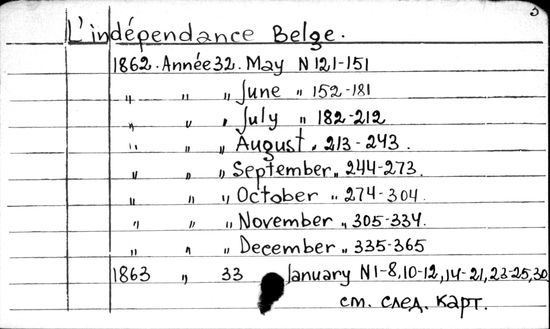 5
L'indépendance Belge.
1862. Année 32. May N 121-151
„ „ „ June „ 152-181
„ „ „ July „ 182-212
„ „ „ August „ 213-243.
„ „ „ September „ 244-273.
„ „ „ October „ 274-304.
„ „ „ November „ 305-334.
„ „ „ December „ 335-365
1863 „ 33 January N 1-8, 10-12, 14-21, 23-25, 30
см. след. карт.